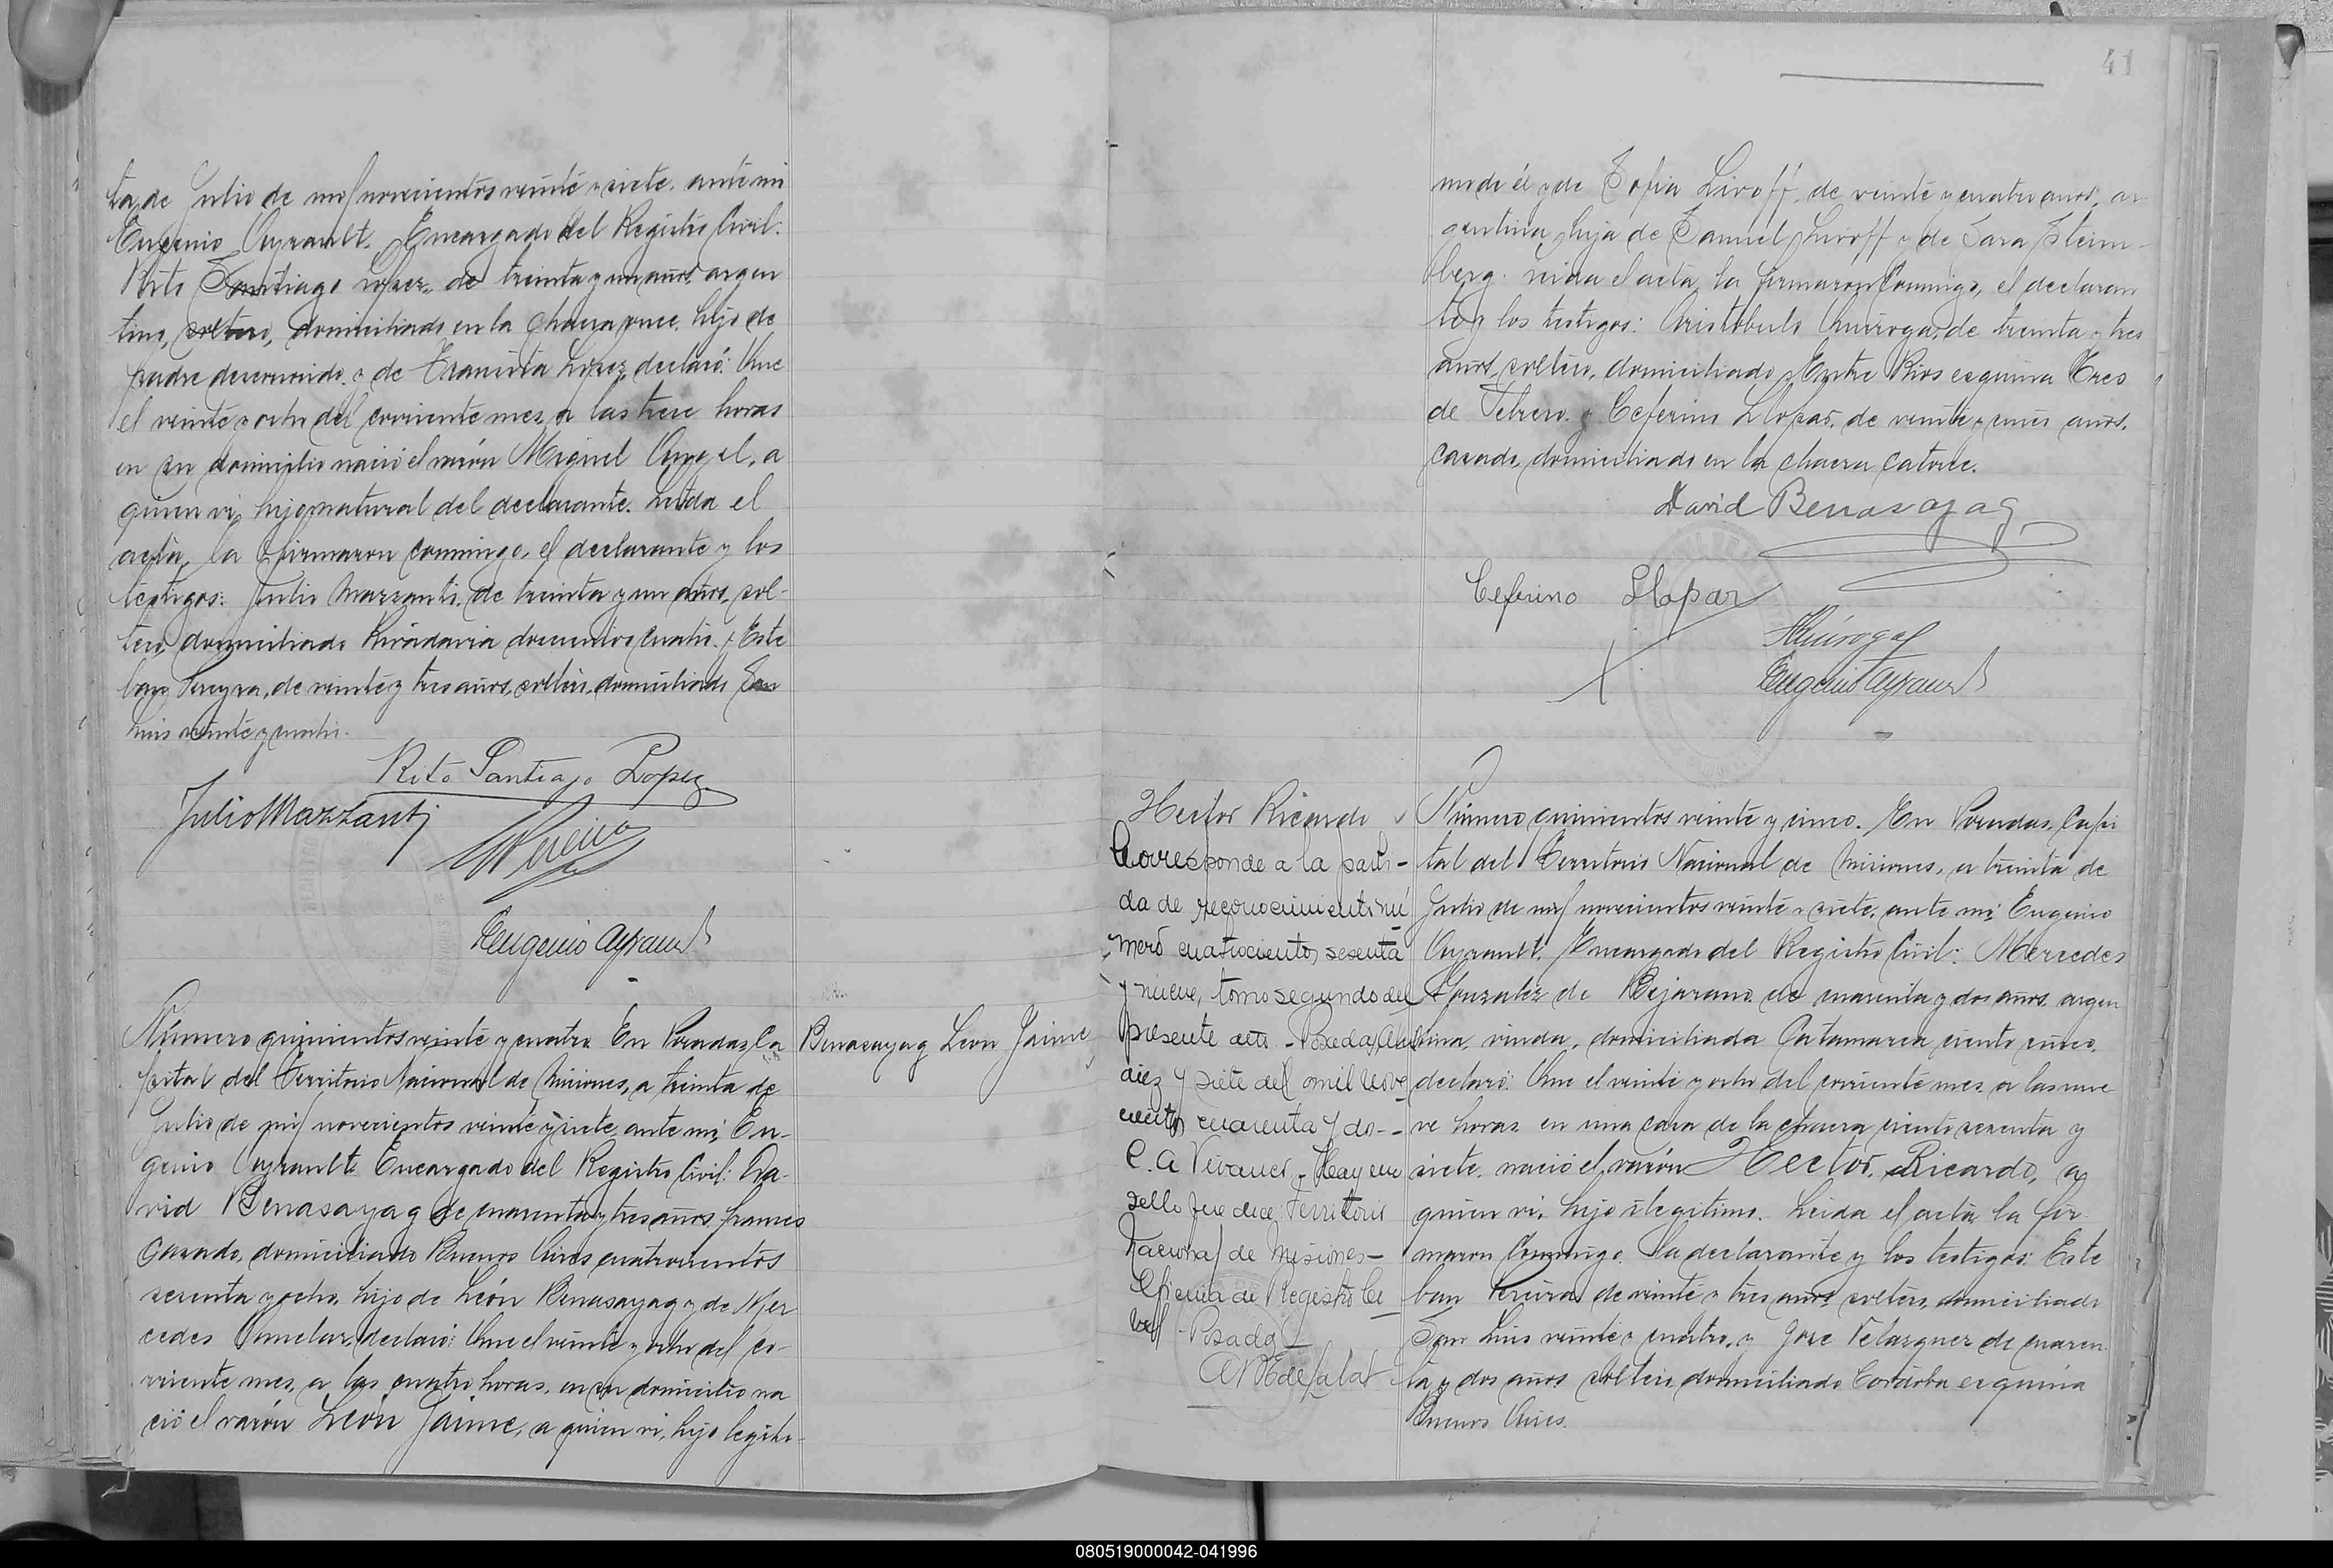 ta, de Julio de mil novecientos veinte y siete, ante mi
Eugenio Ayrault, Encargado del Registro Civil:
Rito Santiago López, de treinta y un años, argen
tino, soltero, domiciliado en la chacra once, hijo de
padre desconocido, y de López, declaró: Que
el veinte y ocho del corriente mes, a las trece horas
en su domicilio nació el varón Miguel Angel, a
quien vi, hijo natural del declarante. Leída el
acta, la firmaron conmigo, el declarante y los
testigos: Julio Mazzanti, de treinta y un años, sol-
tero, domiciliado Rivadavia doscientos cuatro, y Este
ban Pereyra, de veinte y tres años, soltero, domiciliado San
Luis veinte y cuatro.
Rito Santiago Lopez
Julio Mazzanti
EPereira
Eugenio Ayrault
Número quinientos veinte y cuatro. En Posadas, Ca
pital del Territorio Nacional de Misiones, a treinta de
Julio de mil novecientos veinte y siete, ante mi, Eu-
genio Ayrault, Encargado del Registro Civil: Da-
vid Benasayag de cuarenta y tres años, francés
casado, domiciliado Buenos Aires cuatrocientos
sesenta y ocho, hijo de León Benasayag y de Mer
cedes declaró: Que el veinte y ocho del co-
rriente mes, a las cuatro horas, en su domicilio na
ció el varón León Jaime, a quien vi, hijo legíti-
Benasayag Leon Jaime
41
mo de él y de Sofia Livoff, de veinte y cuatro años, ar
gentina, hija de Samuel Livoff y de Sara Stein-
berg. Leída el acta, la firmaron conmigo, el declaran
te y los testigos: Aristóbulo Quiroga, de treinta y tres
años, soltero, domiciliado Entre Rios esquina Tres
de Febrero, y Ceferino Llopar, de veinte y años,
casado, domiciliado en la chacra catorce.
David Benasayag
Ceferino Llopar
AQuiroga
Eugenio Ayrault
Hector Ricardo
Corresponde a la parti-
da de reconocimiento nú
mero cuatrocientos sesenta
y nueve, tomo segundo del
presente año. - Posadas, Abril
diez y siete de mil nove
cientos cuarenta y do--
C. A Vivanco - Hay un
sello que dice Territorio
Nacional de Misiones-
Oficina de Registro Ci
vil - Posadas
Número quinientos veinte y cinco. En Posadas, Capi
tal del Territorio Nacional de Misiones, a treinta de
Julio de mil novecientos veinte y siete, ante mi Eugenio
Ayrault, Encargado del Registro Civil: Mercedes
Gonzalez de Bejarano, de cuarenta y dos años, argen
tina, viuda, domiciliada Catamarca ciento cinco,
declaró: Que el veinte y ocho del corriente mes, a las nue
ve horas en una casa de la chacra ciento sesenta y
siete, nació el varón Hector Ricardo, a
quien vi, hijo ilegítimo. Leída el acta la fir
maron conmigo, la declarante y los testigos: Este
ban Pereira, de veinte y tres años, soltero, domiciliado
San Luis veinte y cuatro, y José Velazquez de cuaren
ta y dos años soltero, domiciliado Cordoba esquina
Buenos Aires.
080519000042-041996